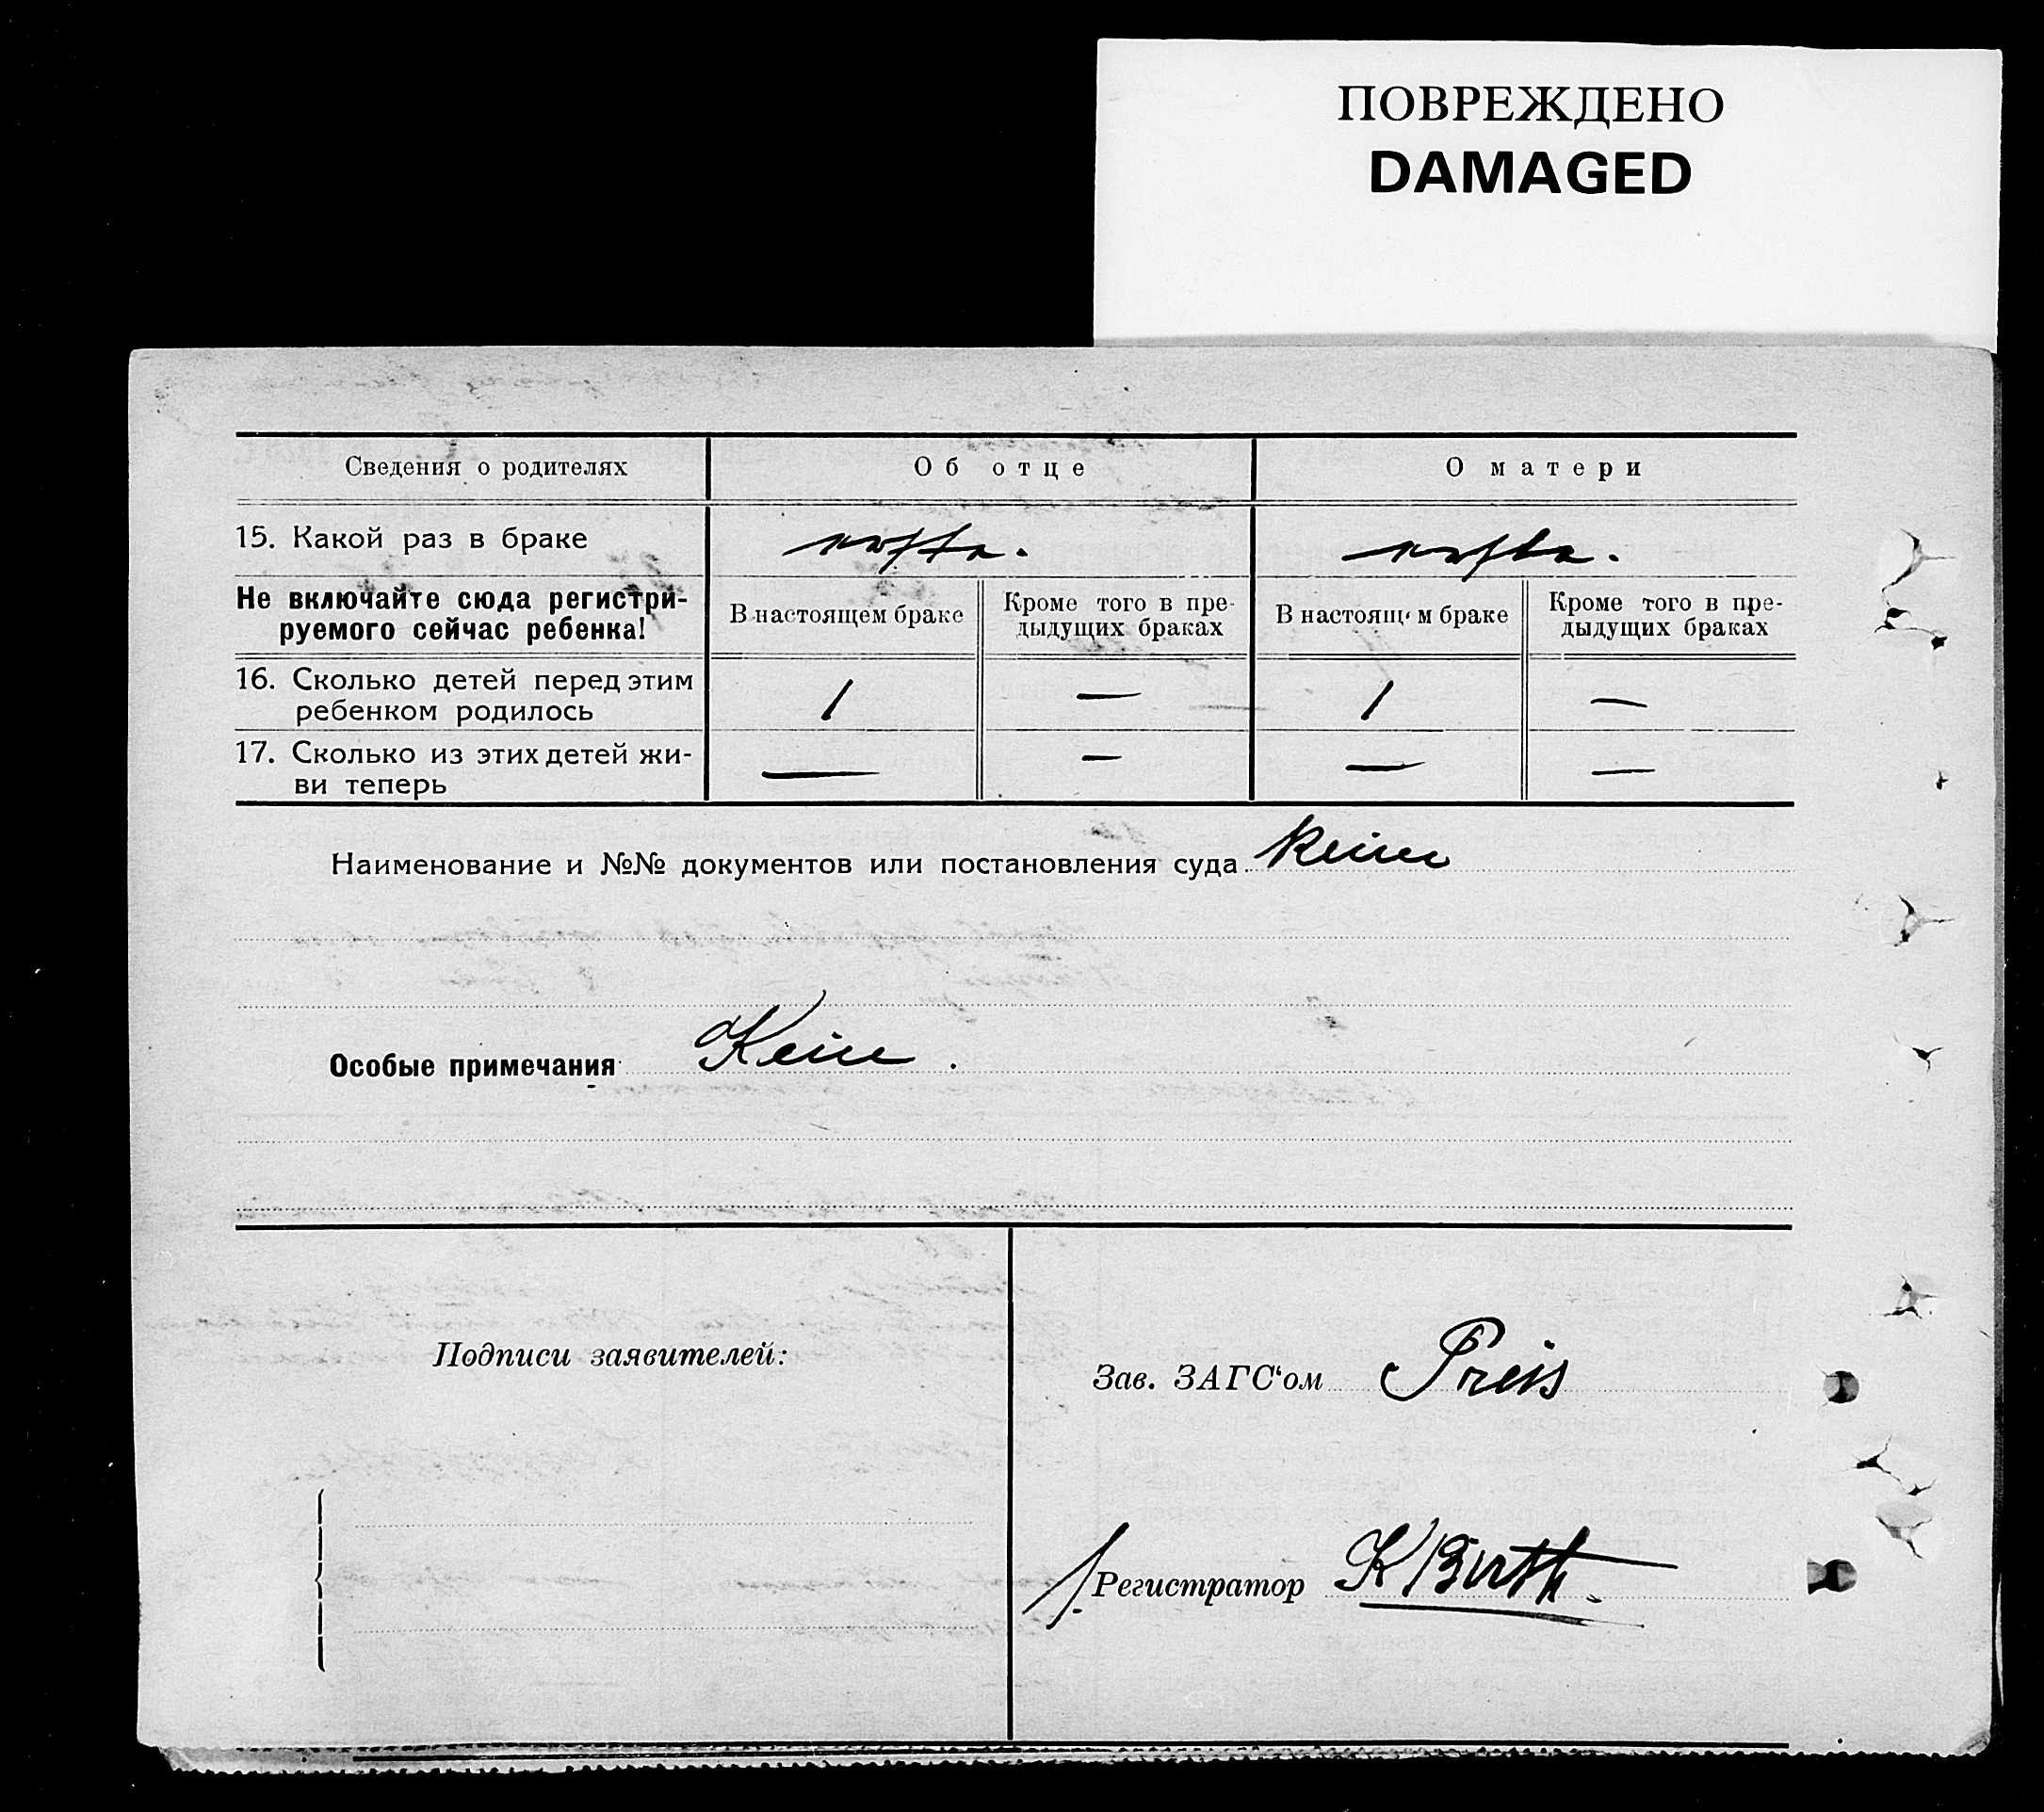 ПОВРЕЖДЕНО
DAMAGED
Сведения о родителях Об отце О матери
15. Какой раз в браке
Не включайте сюда регистри-
руемого сейчас ребенка!
В настоящем браке Кроме того в пре-
дыдущих браках
В настоящем браке Кроме того в пре-
дыдущих браках
16. Сколько детей перед этим
ребенком родилось 1 — 1 —
17. Сколько из этих детей жи-
ви теперь — — — —
Наименование и №№ документов или постановления суда Keine
Особые примечания Keine.
Подписи заявителей:
Зав. ЗАГС‘ом Preis
Регистратор K